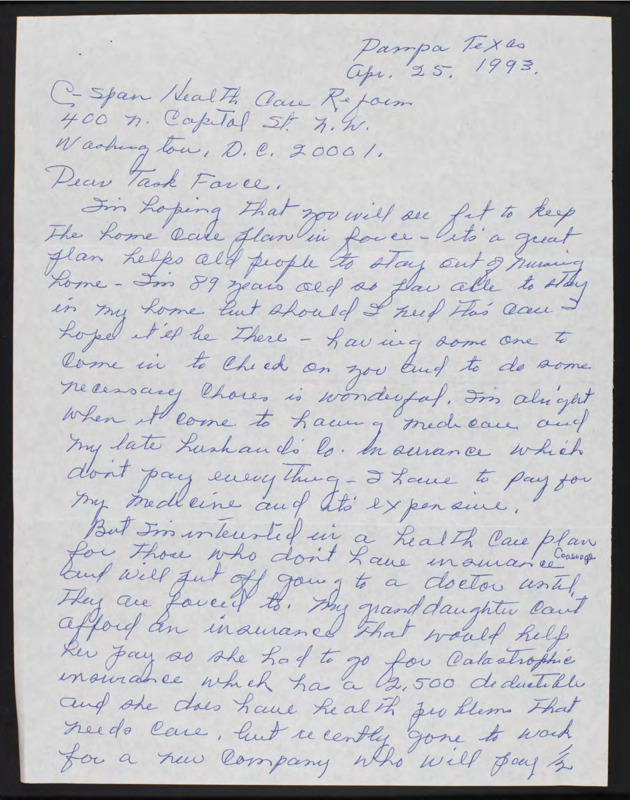 Pampa Texas
Apr. 25, 1993.
C-Span Health Care Reform
400 N. Capital St. N.W.
Washington, D.C. 20001.
Dear Task Force.
I'm hoping that you will see fit to keep
the home care plan in force - it's a great
plan helps old people to stay out of nursing
home - I'm 89 years old so far able to stay
in my home but should I need this care I
hope it'll be there - having some one to
come in to check on you and to do some
necessary chores is wonderful. I'm alright
when it come to having medicare and
my late husband's Co. insurance which
don't pay everything - I have to pay for
my medicine and it's expensive.
But I'm interested in a health care plan
for those who don't have insurance coverage
and will put off going to a doctor until
they are forced to. My granddaughter can't
afford an insurance that would help
her pay so she had to go for Catastrophic
insurance which has a 2,500 deductible
and she does have health problems that
needs care, but recently gone to work
for a new company who will pay 1/2